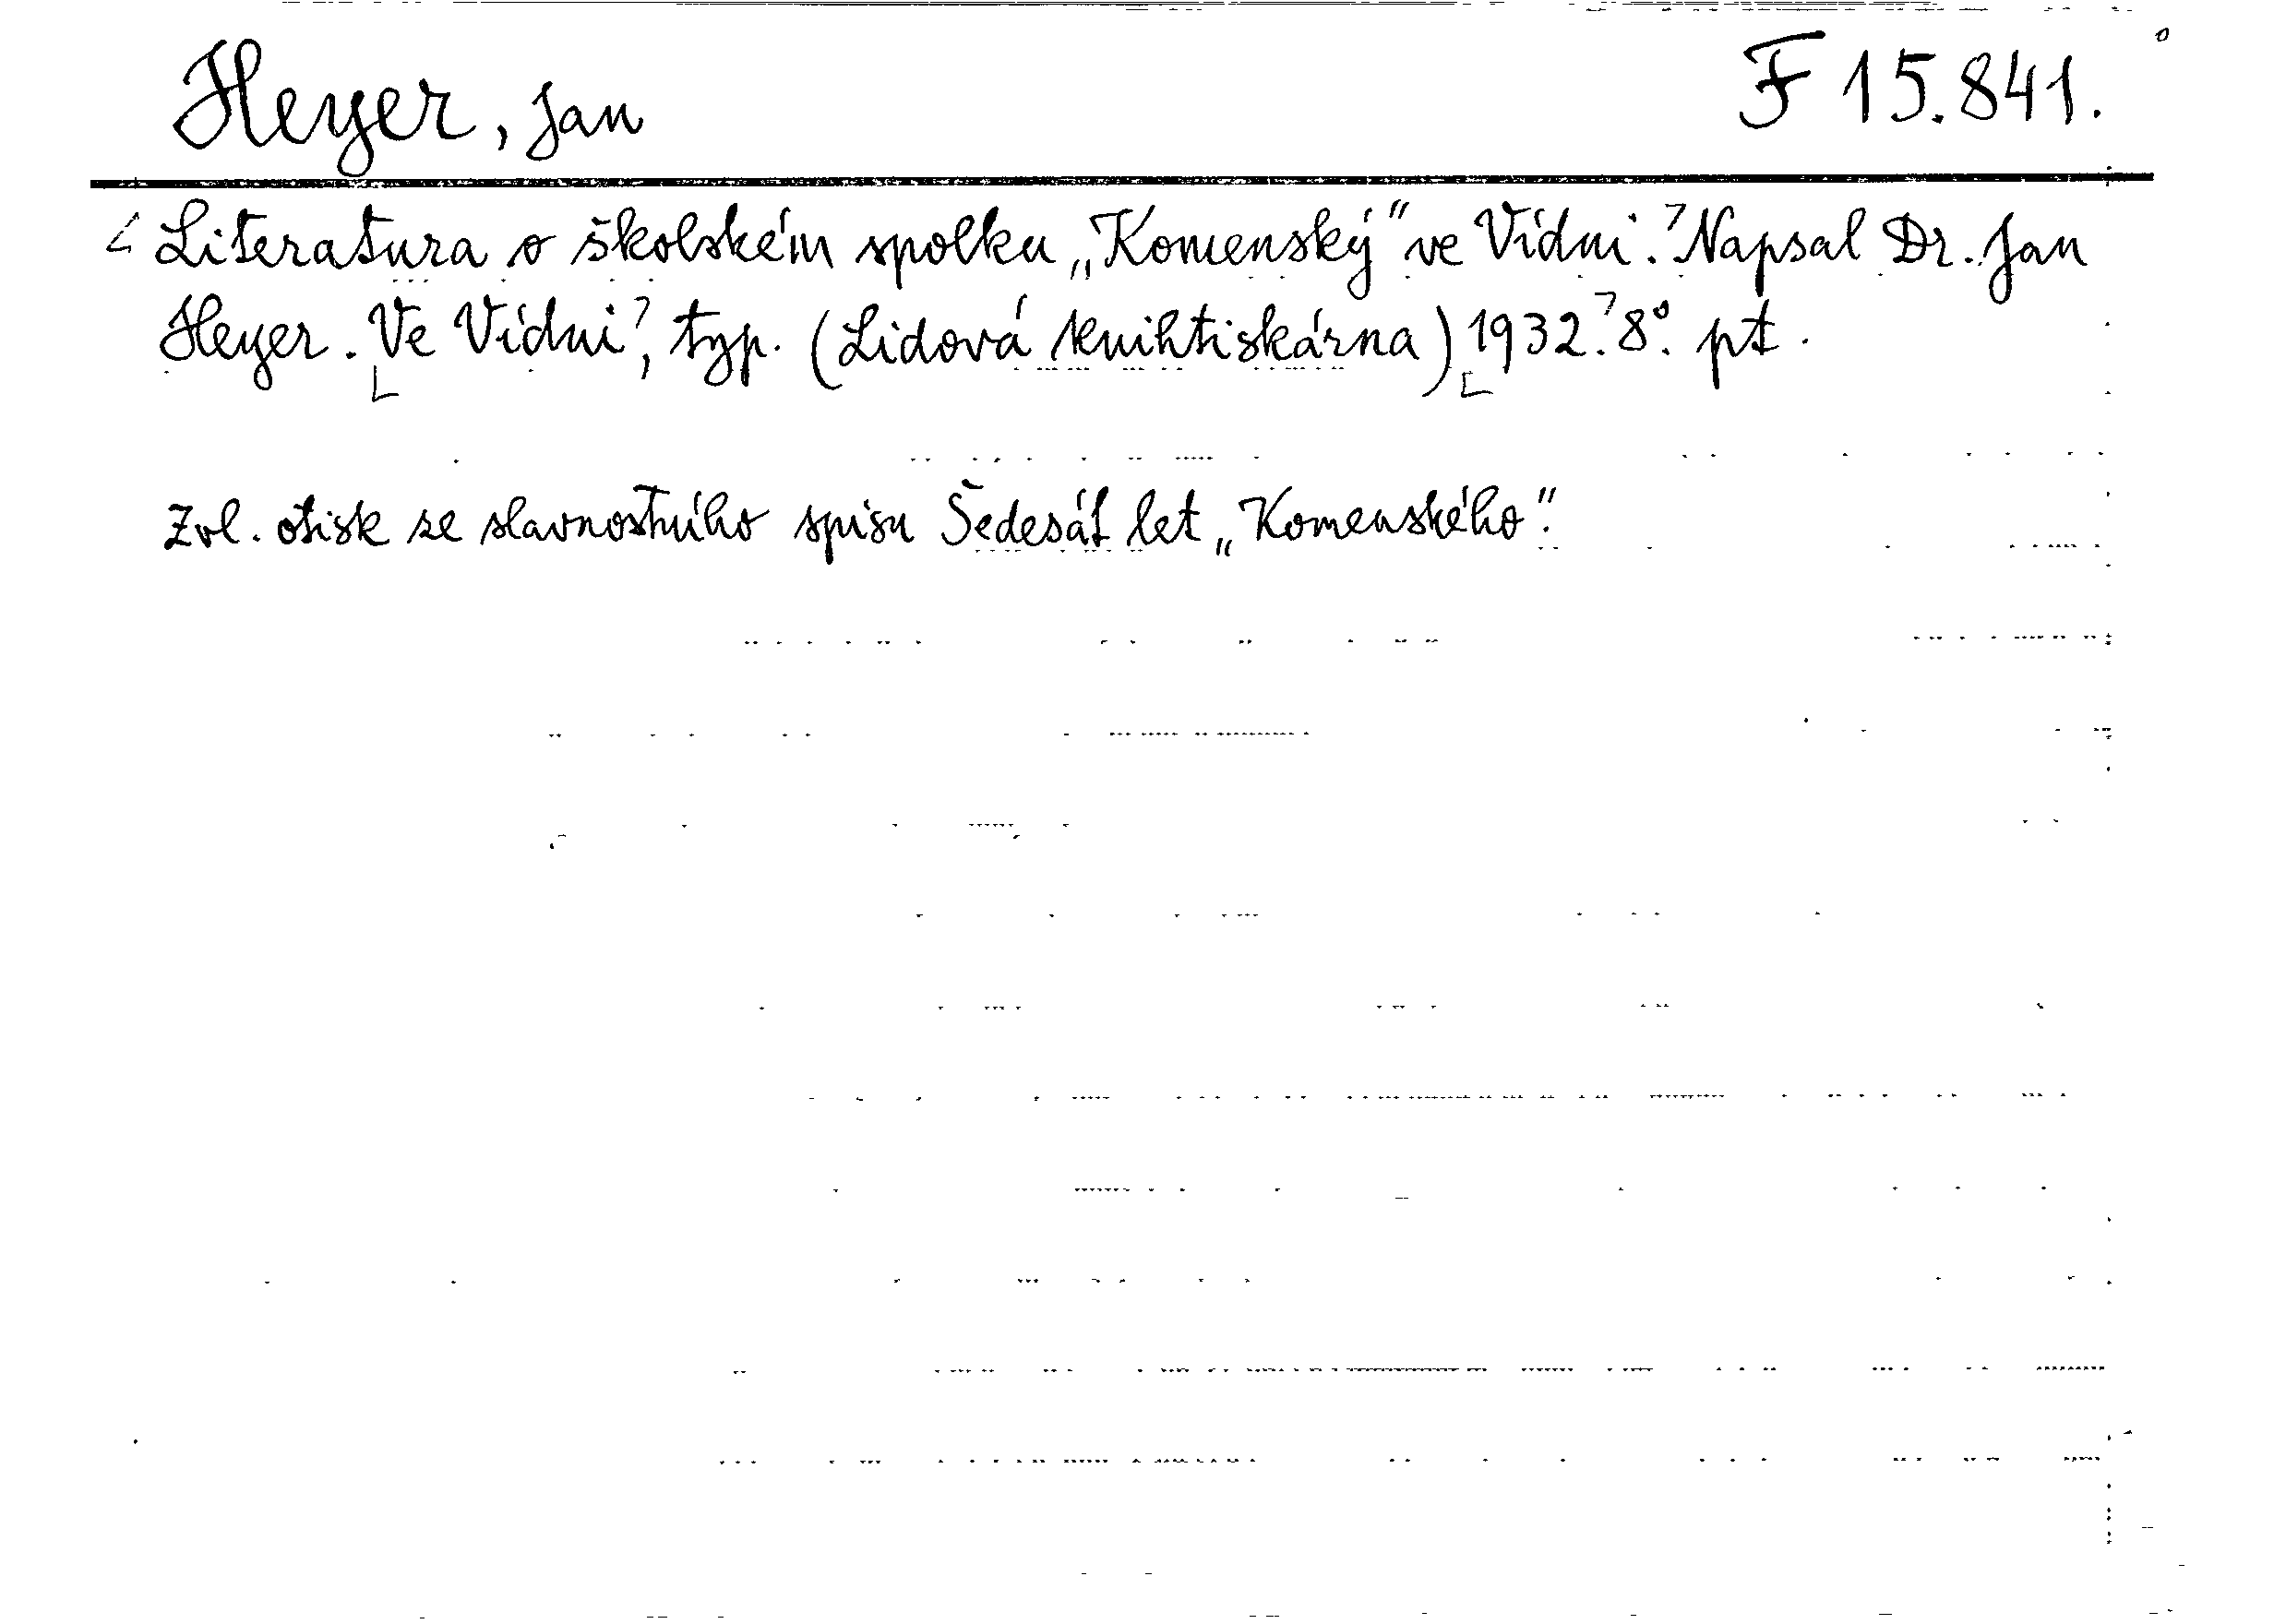 Heyer, Jan F 15.841.
Literatura o školském spolku „Komenský“ ve Vídni. Napsal Dr. Jan
Heyer. Ve Vídni, typ. (Lidová knihtiskárna) 1932. 8°. pt.
Zvl. otisk ze slavnostního spisu Šedesát let „Komenského“.